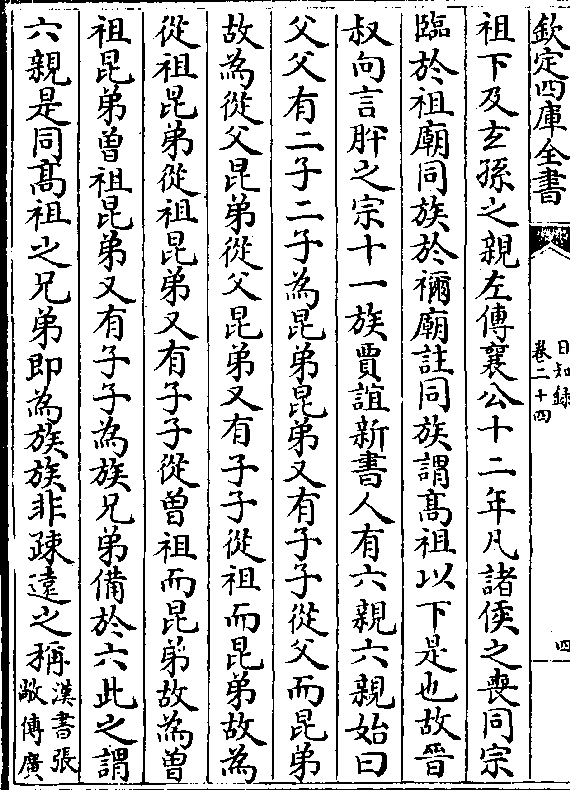 欽定四庫全書
日知録
卷二十四
四
祖下及玄孫之親左傳襄公十二年凡諸侯之喪同宗
臨於祖廟同族於禰廟註同族謂髙祖以下是也故晉
叔向言肸之宗十一族賈誼新書人有六親六親始曰
父父有二子二子為昆弟昆弟又有子子從父而昆弟
故為從父昆弟從父昆弟又有子子從祖而昆弟故為
從祖昆弟從祖昆弟又有子子從曾祖而昆弟故為曾
祖昆弟曾祖昆弟又有子子為族兄弟備於六此之謂
六親是同髙祖之兄弟即為族族非疎遠之稱
漢書張
敞傳廣